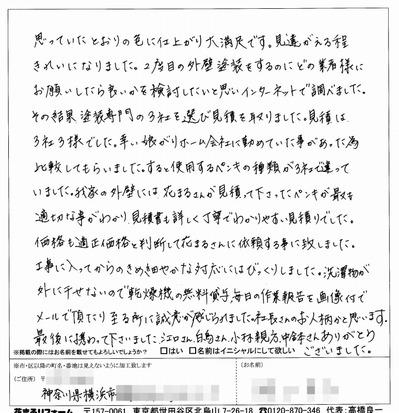 思っていたとおりの色に仕上がり大満足です。見違がえる程
きれいになりました。2度目の外壁塗装をするのにどの業者様に
お願いしたら良いかを検討したいと思いインターネットで調べました。
その結果塗装専門の3社を選び見積を取りました。見積は
3社3様でした。幸い娘がリホーム会社に勤めていた事があった為
比較してもらいました。すると使用するペンキの種類が3社で違って
いました。我家の外壁には花まるさんが見積って下さったペンキが最も
適切な事がわかり見積書も詳しく丁寧でわかりやすい見積りでした。
価格も適正価格と判断して花まるさんに依頼する事に致しました。
工事に入ってからのきめ細やかな対応にはびっくりしました。洗濯物が
外に干せないので乾燥機の無料貸与、毎日の作業報告を画像付で
メールで頂たり至る所に誠意が感じられました。社長さんのお人柄かと思います。
最後に携わって下さいました江口さん、白鳥さん、小林親方、中鉢さんありがとう
ございました。
※掲載の際にはお名前を載せてもよろしいでしょうか？ □はい □名前はイニシャルにして欲しい
※市・区以降の町名・番地は見えないように加工致します
（ご住所） （お名前）
神奈川県横浜市
花まるリフォーム 〒157-0061 東京都世田谷区北烏山7-26-18 0120-870-346 代表:高橋良一